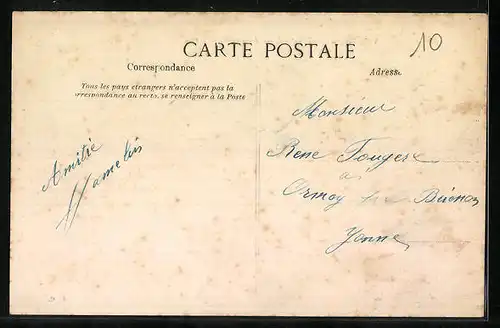 CARTE POSTALE
10
Correspondance
Adresse
Tous les pays étrangers n'acceptent pas la
correspondance au recto, se renseigner à la Poste
Amitié
Hamelin
Monsieur
René Fougere
à
Ormoy
Yonne